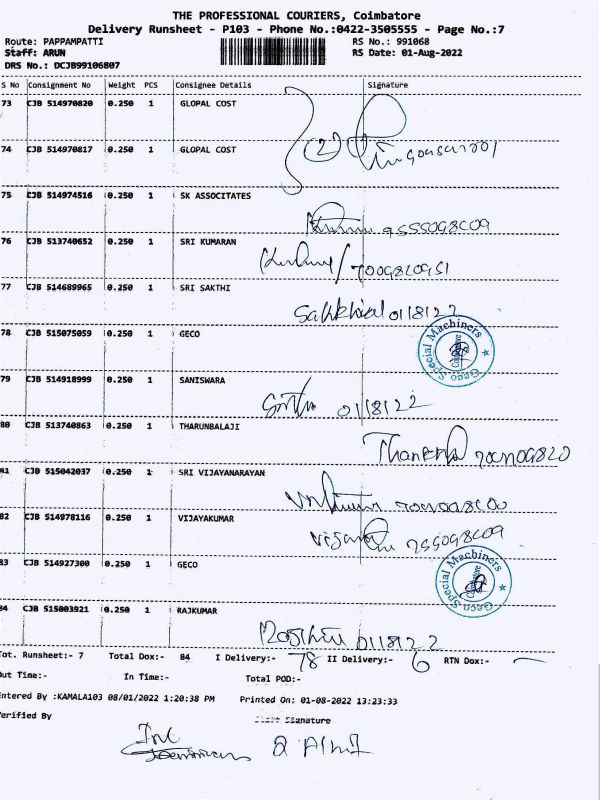 THE PROFESSIONAL COURIERS, Coimbatore
Delivery Runsheet - P103 - Phone No.:0422-3505555 - Page No.:7
Route: PAPPAMPATTI RS No.: 991068
Staff: ARUN RS Date: 01-Aug-2022
DRS No.: DCJB99106807
S No Consignment No Weight PCS Consignee Details Signature
73 CJB 514970820 0.250 1 GLOPAL COST
74 CJB 514970817 0.250 1 GLOPAL COST
(2)
75 CJB 514974516 0.250 1 SK ASSOCITATES
76 CJB 513740652 0.250 1 SRI KUMARAN
77 CJB 514689965 0.250 1 SRI SAKTHI
01/8/22
78 CJB 515075059 0.250 1 GECO
Geco Special Machiners Coimbatore
79 CJB 514918999 0.250 1 SANISWARA
01/8/22
80 CJB 513740863 0.250 1 THARUNBALAJI
81 CJB 515042037 0.250 1 SRI VIJAYANARAYAN
82 CJB 514978116 0.250 1 VIJAYAKUMAR
83 CJB 514927300 0.250 1 GECO
Geco Special Machiners Coimbatore
84 CJB 515003921 0.250 1 RAJKUMAR
01/8/22
Tot. Runsheet:- 7 Total Dox:- 84 I Delivery:- 78 II Delivery:- 6 RTN Dox:- —
Out Time:- In Time:- Total POD:-
Entered By :KAMALA103 08/01/2022 1:20:38 PM Printed On: 01-08-2022 13:23:33
Verified By Signature